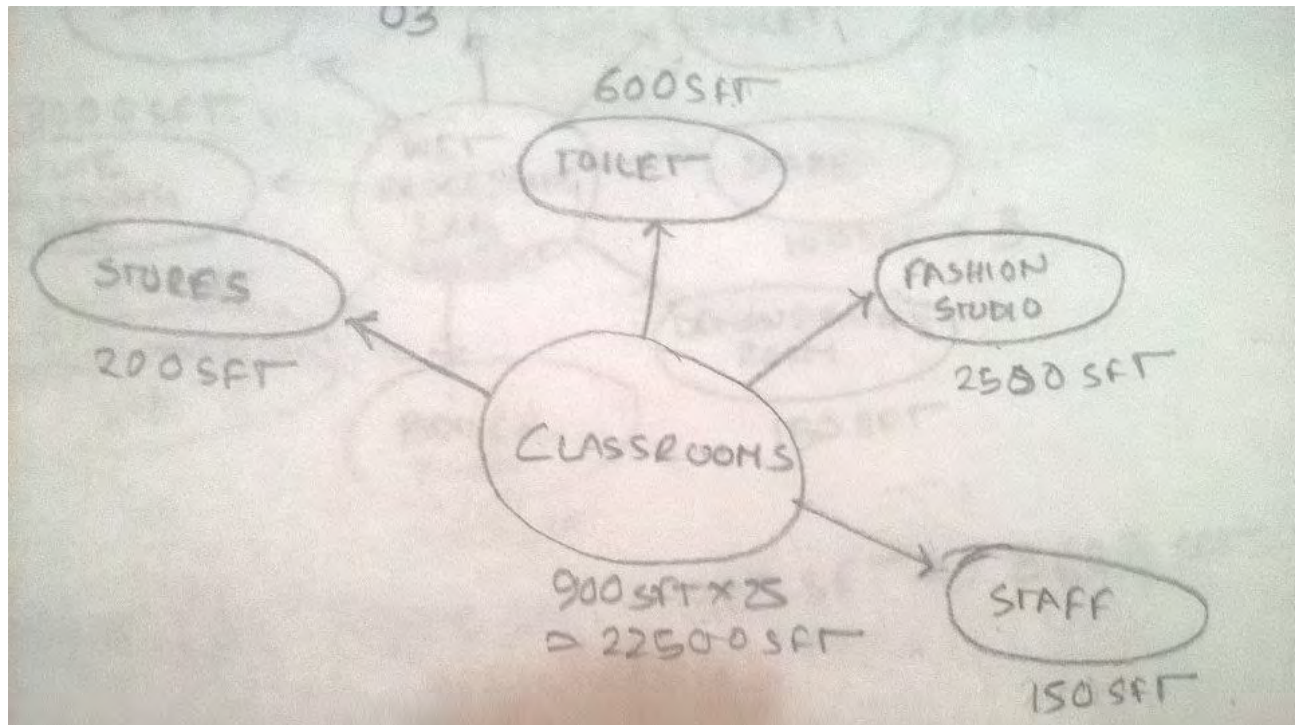 03
600 SFT
TOILET
STORES
200 SFT
FASHION
STUDIO
2500 SFT
CLASSROOMS
900 SFT X 25
⇒ 22500 SFT
STAFF
150 SFT